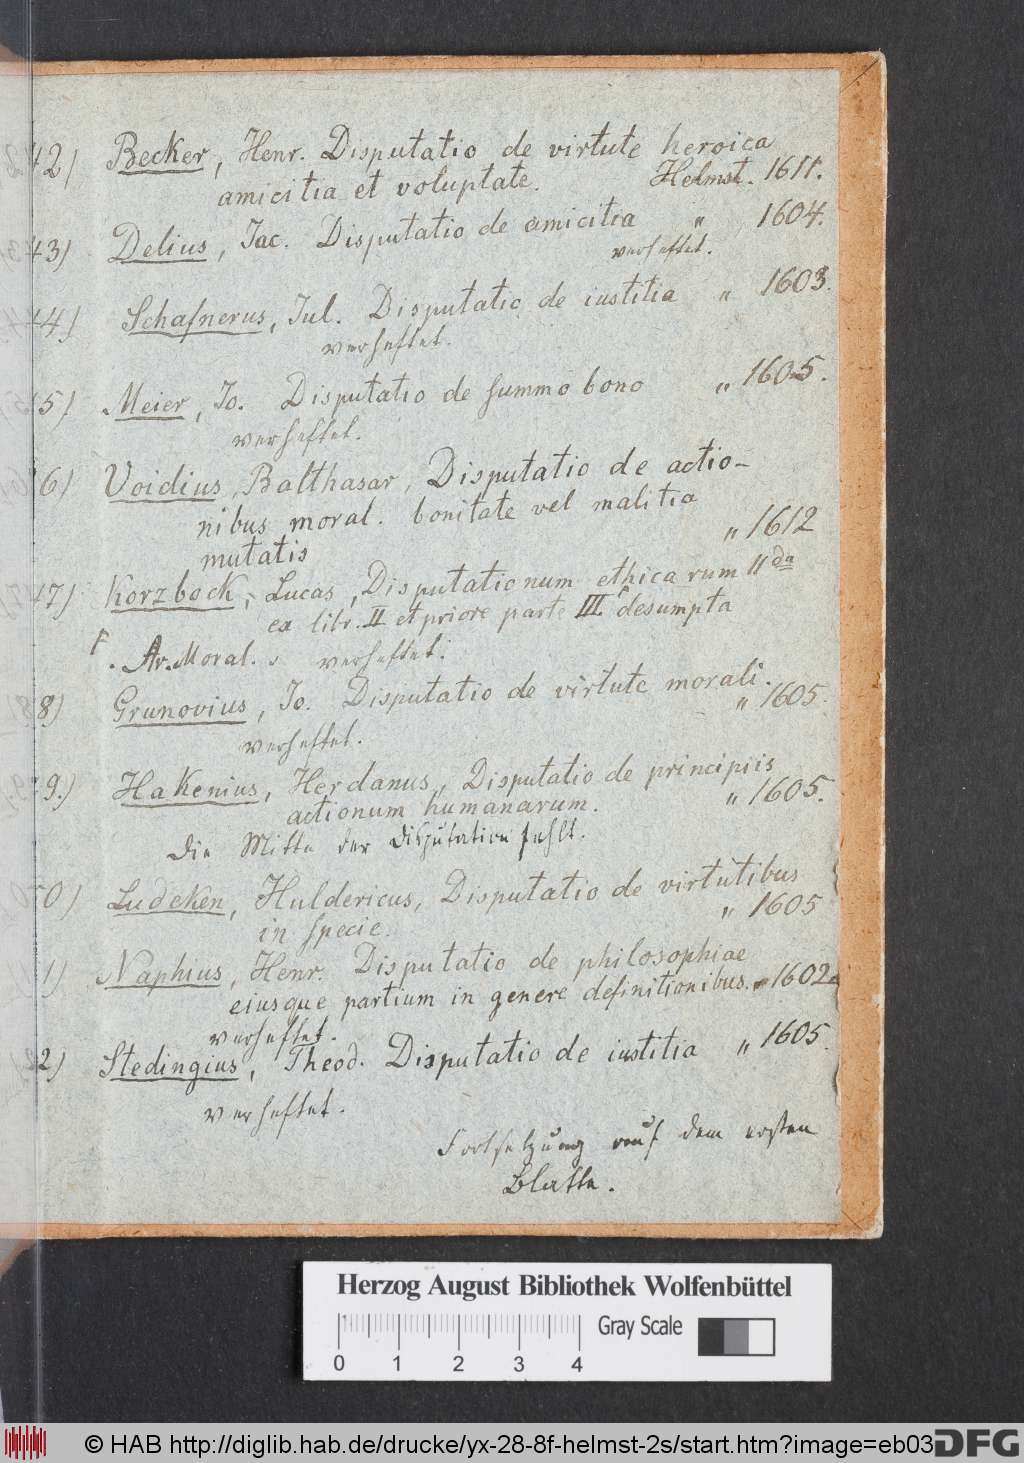 42) Becker, Henr. Disputatio de virtute heroica
amicitia et voluptate. Helmst. 1611.
43) Delius, Jac. Disputatio de amicitia „ 1604.
verheftet.
44) Schafnerus, Jul. Disputatio de iustitia „ 1603.
verheftet.
5) Meier, Jo. Disputatio de summo bono „ 1605.
verheftet.
6) Voidius, Balthasar, Disputatio de actio-
nibus moral. bonitate vel malitia
mutatis „ 1612
47) Korzbock, Lucas, Disputationum ethicarum II da
ex libr. II et priore parte III. desumpta
Ar. Moral. verheftet.
8) Grunovius, Jo. Disputatio de virtute morali.
„ 1605.
verheftet.
9.) Hakenius, Herdanus, Disputatio de principiis
actionum humanarum. „ 1605.
Die Mitte der Disputation fehlt.
0) Ludeken, Huldericus, Disputatio de virtutibus
in specie. „ 1605
1) Naphius, Henr. Disputatio de philosophiae
eiusque partium in genere definitionibus. „ 1602
verheftet.
2) Stedingius, Theod. Disputatio de iustitia „ 1605.
verheftet.
Fortsetzung auf dem ersten
Blatte.
Herzog August Bibliothek Wolfenbüttel
Gray Scale
0 1 2 3 4
© HAB http://diglib.hab.de/drucke/yx-28-8f-helmst-2s/start.htm?image=eb03
DFG